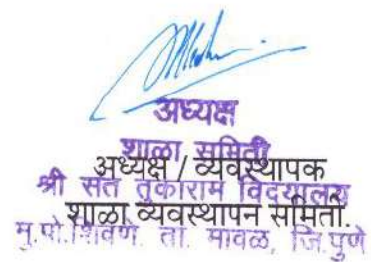 अध्यक्ष
शाळा समिती
अध्यक्ष / व्यवस्थापक
श्री संत तुकाराम विद्यालय
शाळा व्यवस्थापन समिती.
मु.पो.शिवणे. ता. मावळ, जि.पुणे